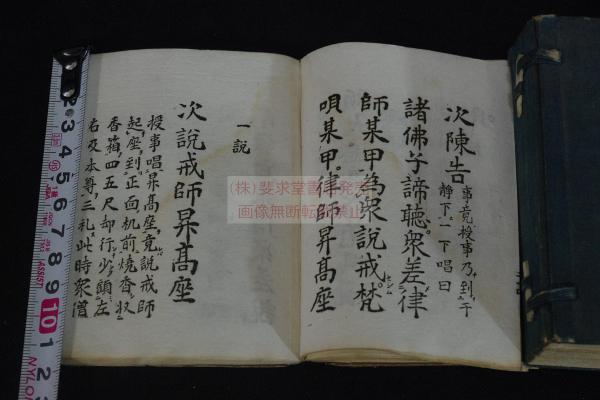 次陳告 事竟授事乃到于
静下一下唱曰
諸佛子諦聴衆差律
師某甲為衆説戒梵
唄某甲律師昇髙座
一説
次説戒師昇髙座
授事唱昇髙座竟説戒師
起座到正面机前焼香収
香箱四五尺却行少頭左
右及本尊三礼此時衆僧
(株)斐求堂書店発売
画像無断転写禁止
2 3 4 5 6 7 8 9 10 1 2 3
NYLON